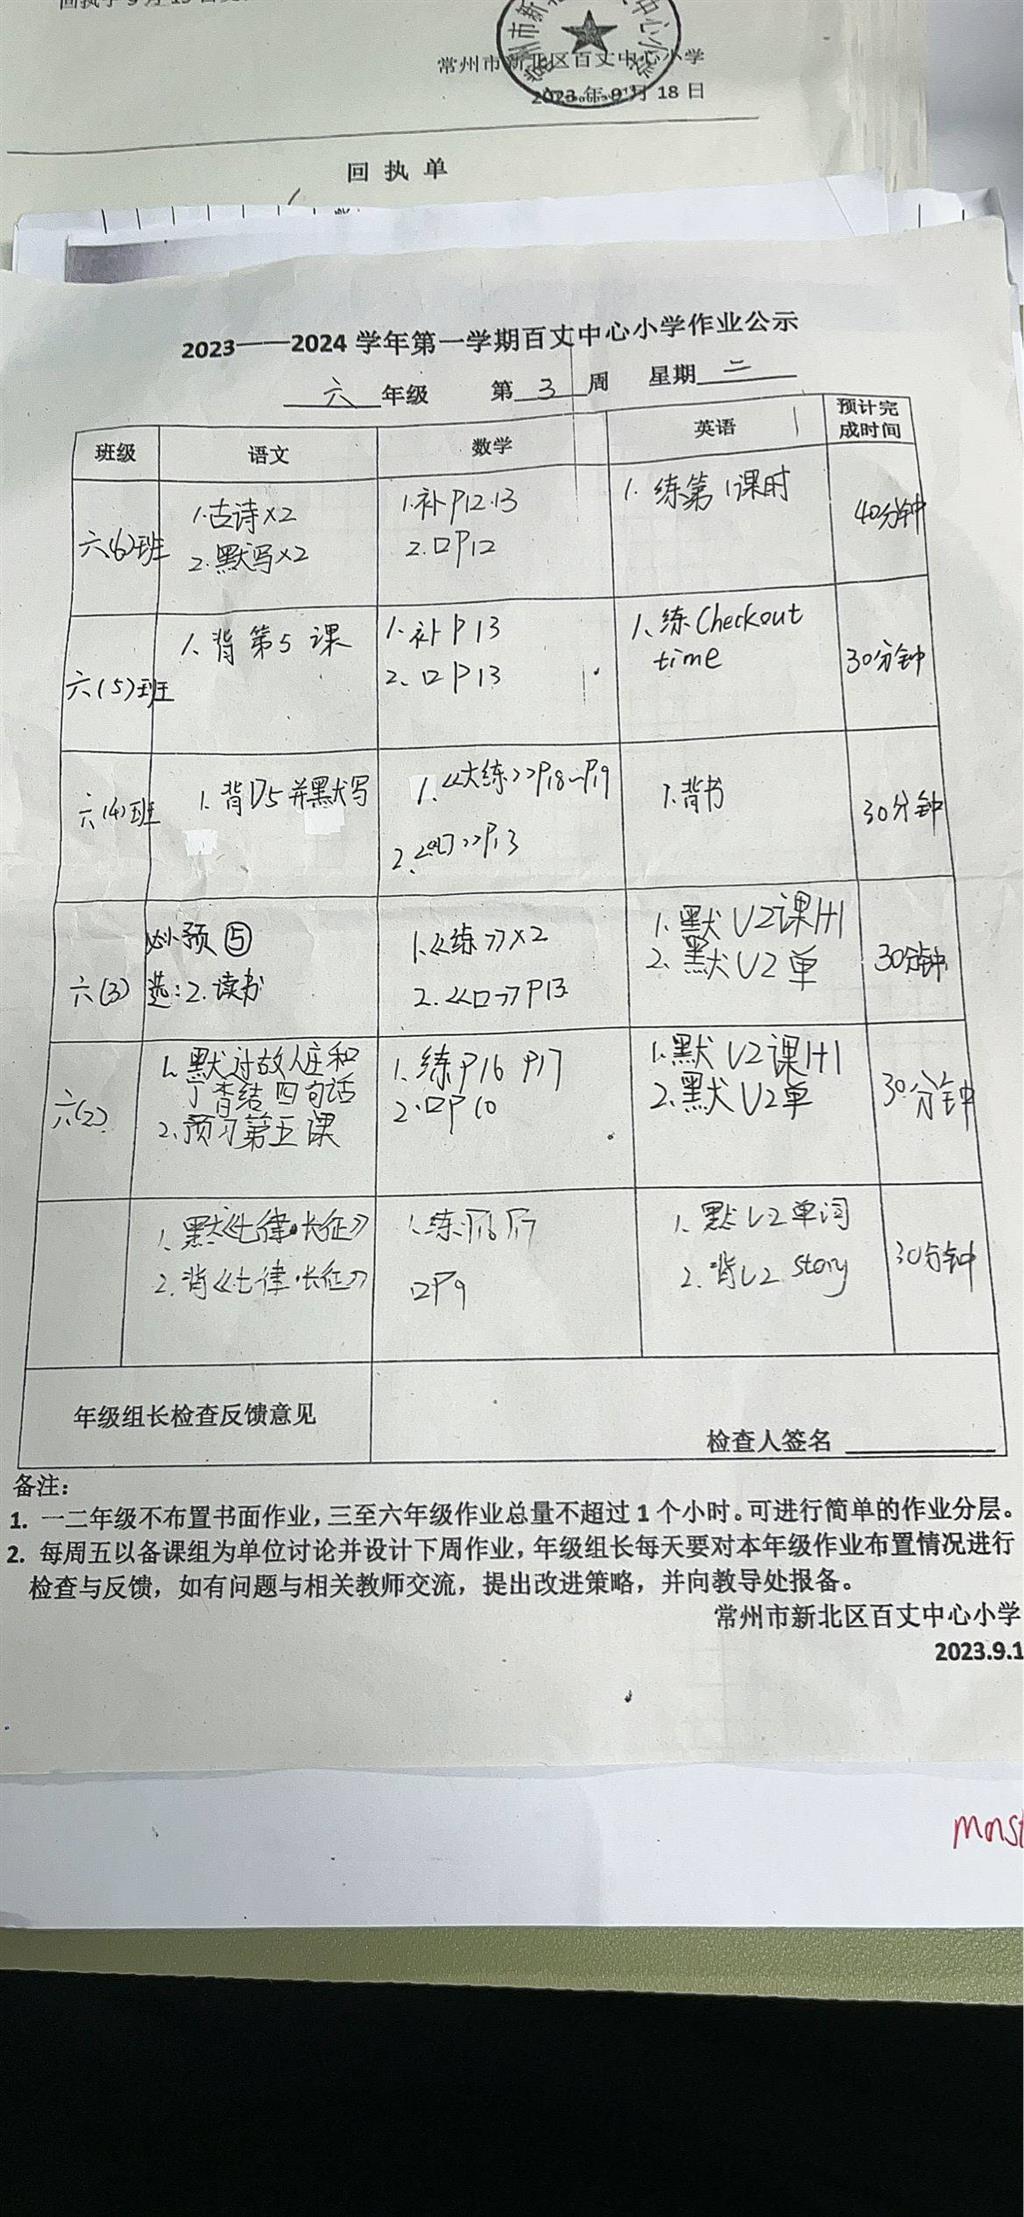 常州市新北区百丈中心小学
2023 年 9 月 18 日
回 执 单
2023——2024 学年第一学期百丈中心小学作业公示
六 年级 第 3 周 星期 二
班级 语文 数学 英语 预计完成时间
六(6)班
1.古诗×2
2.默写×2
1.补P12.13
2.口P12
1. 练第1课时
40分钟
六(5)班
1.背 第5 课
1.补P13
2.口P13
1.练Checkout
time
30分钟
六(4)班
1.背P5并默写
1.《大练》P18-P19
2.《口》P13
1.背书
30分钟
六(3)
必:预⑤
选:2.读书
1.《练》×2
2.《口》P13
1.默U2课文
2.默U2单
30分钟
六(2)
1.默过故人庄和
丁香结四句话
2.预习第五课
1.练P16 P17
2.口P10
1.默U2课文
2.默U2单
30分钟
1.默《七律·长征》
2.背《七律·长征》
1.练P16 P17
口P9
1.默U2单词
2.背U2 story
30分钟
年级组长检查反馈意见
检查人签名
备注：
1. 一二年级不布置书面作业，三至六年级作业总量不超过 1 个小时。可进行简单的作业分层。
2. 每周五以备课组为单位讨论并设计下周作业，年级组长每天要对本年级作业布置情况进行
检查与反馈，如有问题与相关教师交流，提出改进策略，并向教导处报备。
常州市新北区百丈中心小学
2023.9.1